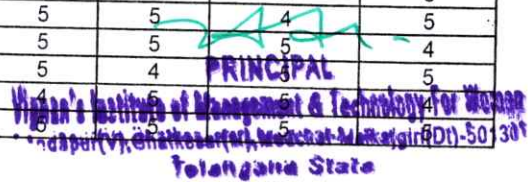 5 5 4 5
5 5 5 4
5 4 PRINCIPAL 5
4 5 5 4
Vignan's Institute of Management & Technology For Women
Ghatkesar(M), Medchal-Malkajgiri(Dt)-501301
Telangana State